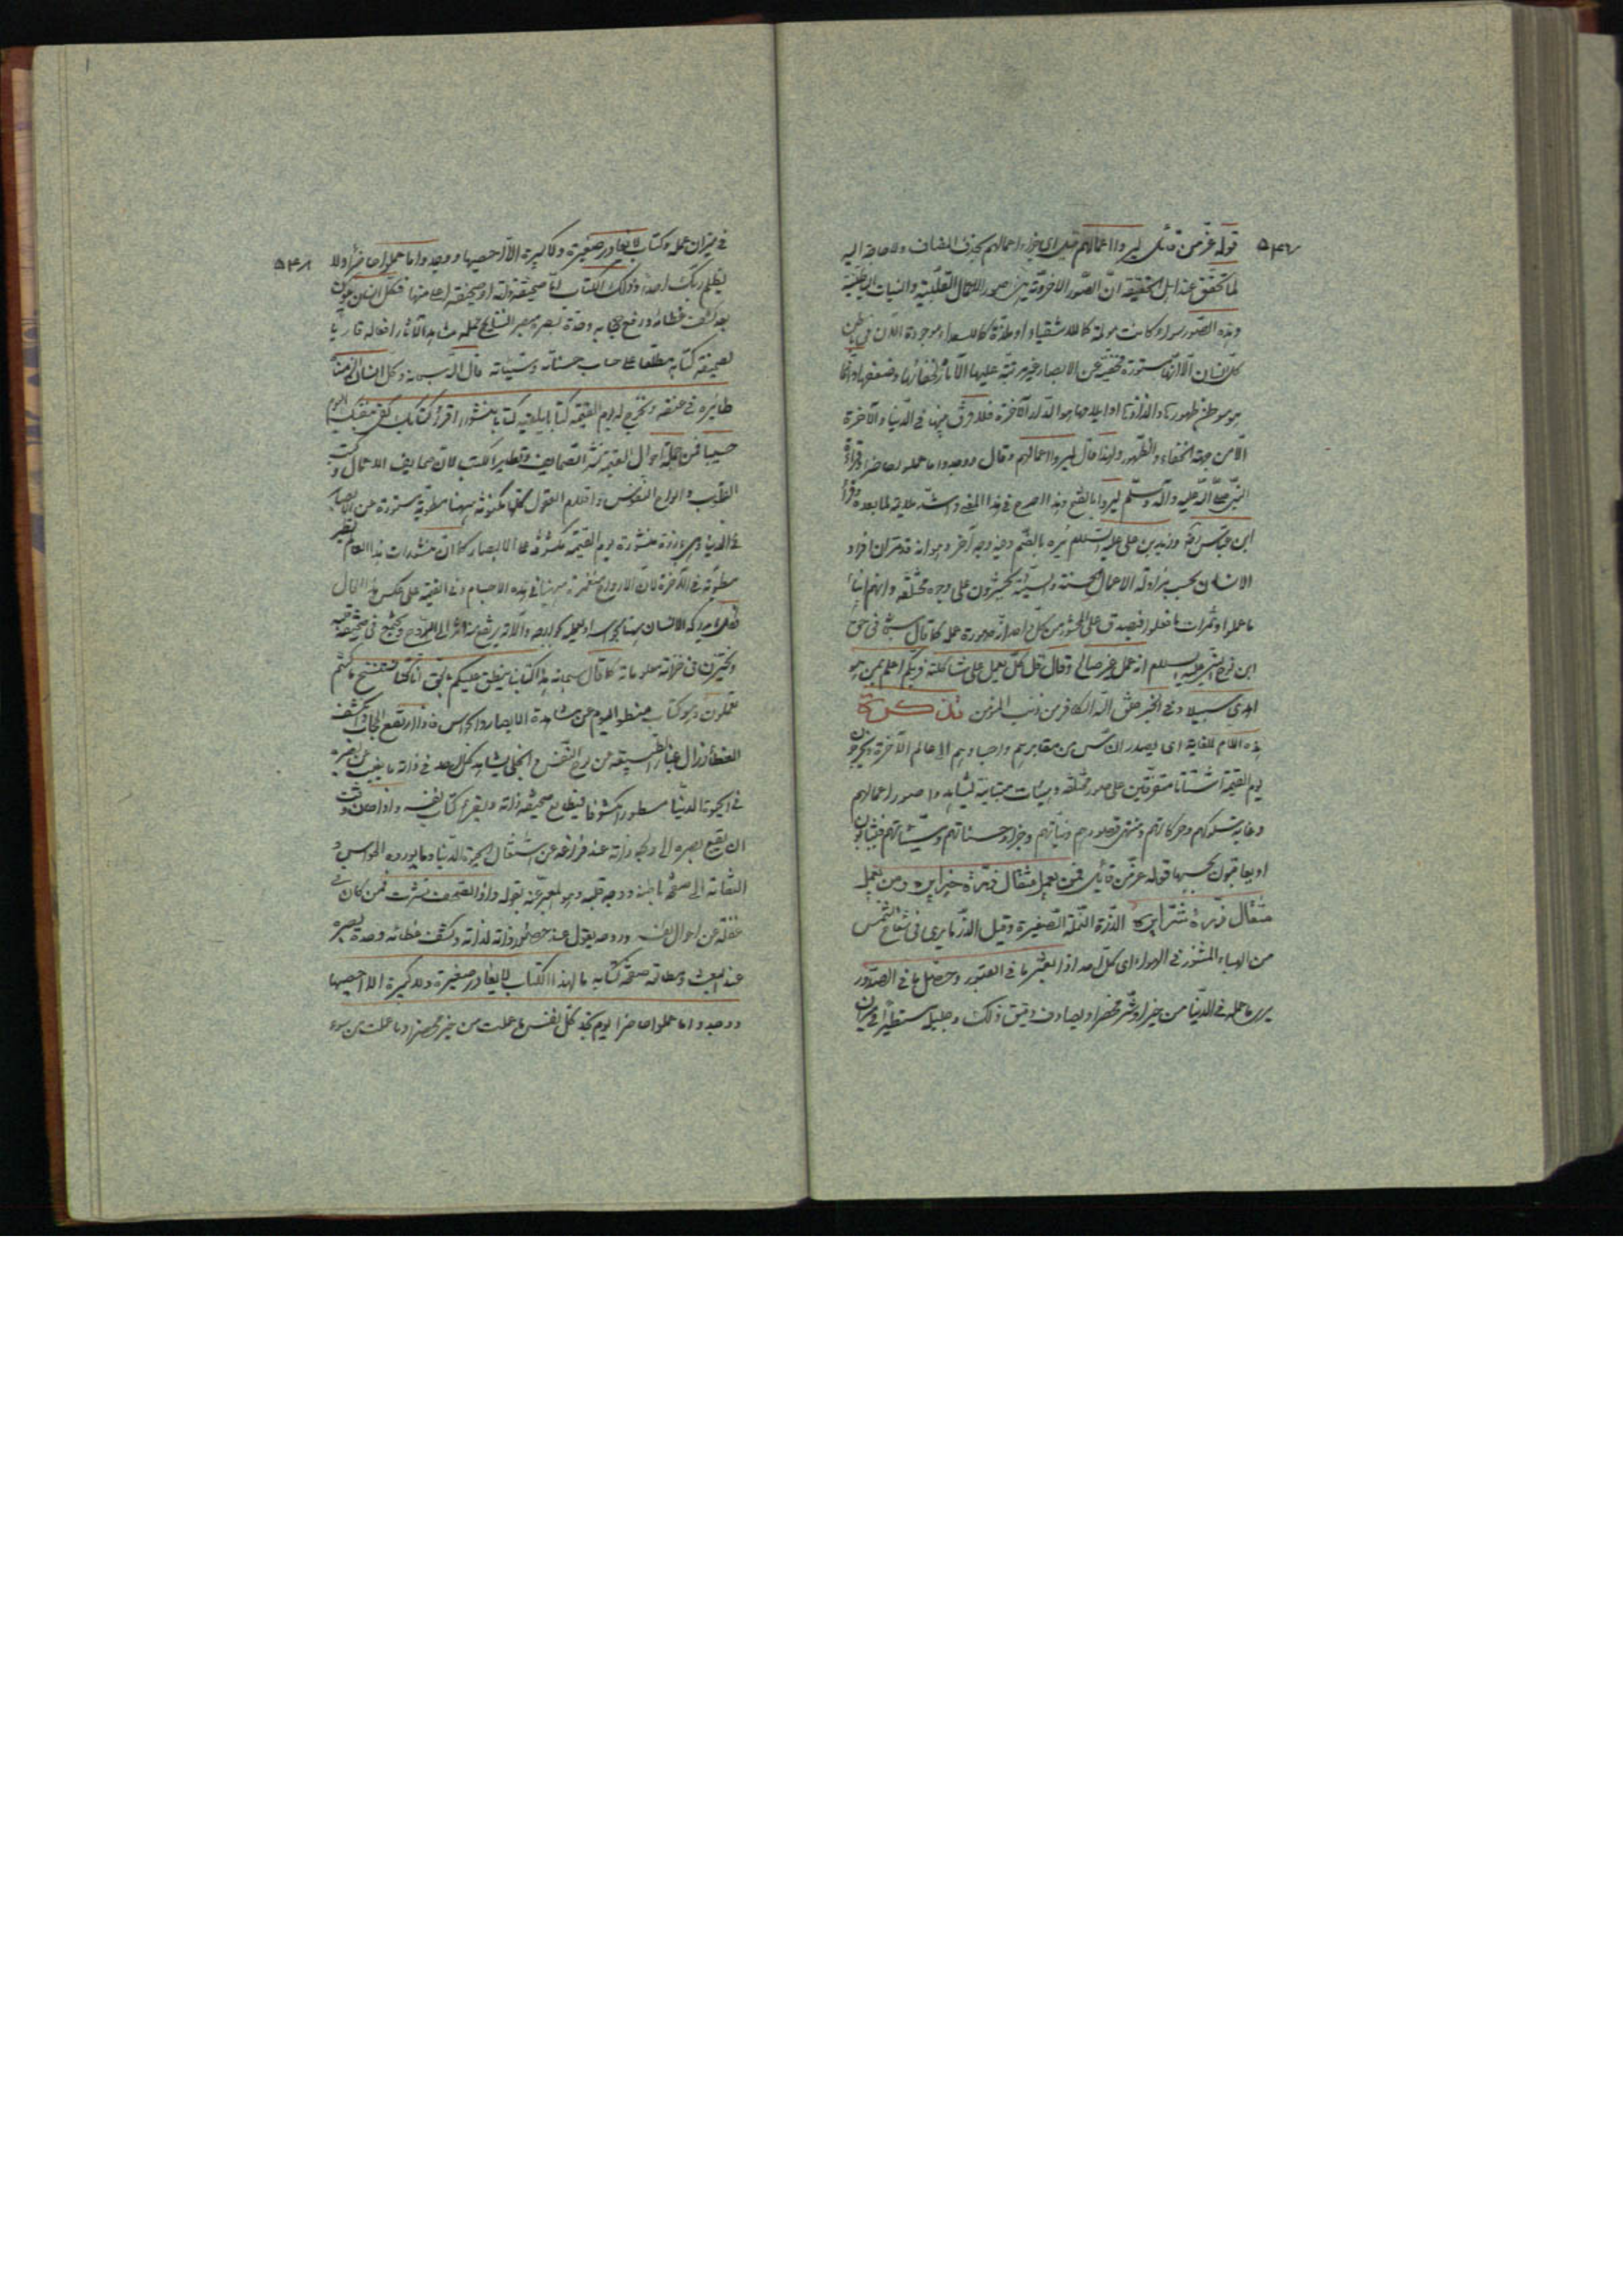 ٥٤٧
قوله عز من قائل ليروا اعمالهم قيل اى جزاء اعمالهم بحذف المضاف ولا حاجة اليه
لما تحقق عند اهل الحقيقة ان الصور الاخروية هى صور الاعمال القلبية والنيات الباطنية
وهذه الصور سواء كانت مولمة كما للاشقياء او ملذة كما للسعداء موجودة الان فى باطن
كل انسان الا انها مستورة مختفية عن الابصار غير مرتبة عليها الآثار لخفائها وضعفها وانما
هو موطن ظهورها والذاذها او ايلامها هو الدار الآخرة فلا فرق بينها فى الدنيا والآخرة
الا من جهة الخفاء والظهور ولهذا قال ليروا اعمالهم وقال ووجدوا ما عملوا حاضرا وقراءة
النبى صلى الله عليه وآله وسلم ليروا بالفتح وهذا اصرح فى هذا المعنى واشد ملائمة لما بعده وقرأ
ابن عباس وزيد بن على عليه السلم يره بالضم وفيه وجه آخر وهو انه قد مر ان افراد
الانسان بحسب مزاولة الاعمال الحسنة والسيئة يحشرون على وجوه مختلفة وانهم
ما عملوا وثمرات ما فعلوا فيصدق على المحشور من كل واحد انه صورة عمله كما قال سبحانه فى حق
ابن نوح النبى عليه السلم انه عمل غير صالح وقال قل كل يعمل على شاكلته فربكم اعلم بمن هو
اهدى سبيلا وفى الخبر خلق الله الكافر من ذنب المؤمن
هذه اللام للغاية اى يصدر الناس من مقابرهم واجسادهم الى عالم الآخرة ويخرجون
يوم القيمة اشتاتا متفرقين على صور مختلفة وهيئات متباينة ليشاهدوا صور اعمالهم
وغاية سلوكهم وحركاتهم ومنتهى قصودهم ونياتهم وجزاء حسناتهم وسيئاتهم فيثابون
او يعاقبون بحسبها قوله عز من قائل فمن يعمل مثقال ذرة خيرا يره ومن يعمل
مثقال ذرة شرا يره الذرة النملة الصغيرة وقيل الذر ما يرى فى شعاع الشمس
من الهباء المنثور فى الهواء اى كل احد اذا بعثر ما فى القبور وحصل ما فى الصدور
يرى ما عمله فى الدنيا من خير او شر محضرا ويصادف دقيق ذلك وجليله مستطيرا فى ميزان
٥٤٨
فى ميزان عمله وكتاب لا يغادر صغيرة ولا كبيرة الا احصيها ووجدوا ما عملوا حاضرا ولا
يظلم ربك احدا وذلك الكتاب اما صحيفة ذاته او صحيفة اعلى منها فكل انسان يكون
بعد كشف غطائه ورفع حجابه وحدة بصره مبصرا لنتايج عمله مشاهدا لآثار افعاله قاريا
لصحيفة كتابه مطلعا على حساب حسناته وسيئاته قال الله سبحانه وكل انسان الزمناه
طائره فى عنقه ونخرج له يوم القيمة كتابا يلقيه كتابا منشورا اقرأ كتابك كفى بنفسك اليوم
حسيبا فمن جملة احوال القيمة نشر الصحايف وتطاير الكتب لان صحايف الاعمال وكتب
القلوب والواح النفوس واقلام العقول كلها مكنونة ههنا مطوية مستورة عن الابصار
فى الدنيا وهى بارزة منشورة يوم القيمة مكشوفة على الابصار كما ان منشورات هذا العالم يصير
مطوية فى الآخرة لان الارواح منغمرة ههنا فى هذه الاجسام وفى القيمة على عكس هذا الحال
فكل ما يدركه الانسان ههنا بحواسه او يعمله بجوارحه وآلاته يرتفع منه اثر الى الروح ويجتمع فى صحيفة قلبه
ويختزن فى خزانة معلوماته كما قال سبحانه هذا كتابنا ينطق عليكم بالحق انا كنا نستنسخ ما كنتم
تعملون وهو كتاب منطو اليوم عن مشاهدة الابصار والحواس فاذا ارتفع الحجاب وانكشف
الغطاء وزال غبار الطبيعة عن مرآة النفس وانجلى يشاهد كل احد فى ذاته ما يغيب عن بصره
فى الحيوة الدنيا مسطورا مكشوفا فيطالع صحيفة ذاته ويقرء كتاب نفسه واذا حان وقت
ان يقع بصره الى وجه ذاته عند فراغه عن اشتغال الحيوة الدنيا وما يورده الحواس و
التفاته الى صفحة باطنه ووجه قلبه وهو المعبر عنه بقوله واذا الصحف نشرت فمن كان فى
غفلة عن احوال نفسه وروحه يقول عند حضور ذاته لذاته وكشف غطائه وحدة بصره
عند البعث ومطالعة صفحة كتابه ما لهذا الكتاب لا يغادر صغيرة ولا كبيرة الا احصيها
ووجدوا ما عملوا حاضرا يوم تجد كل نفس ما عملت من خير محضرا وما عملت من سوء